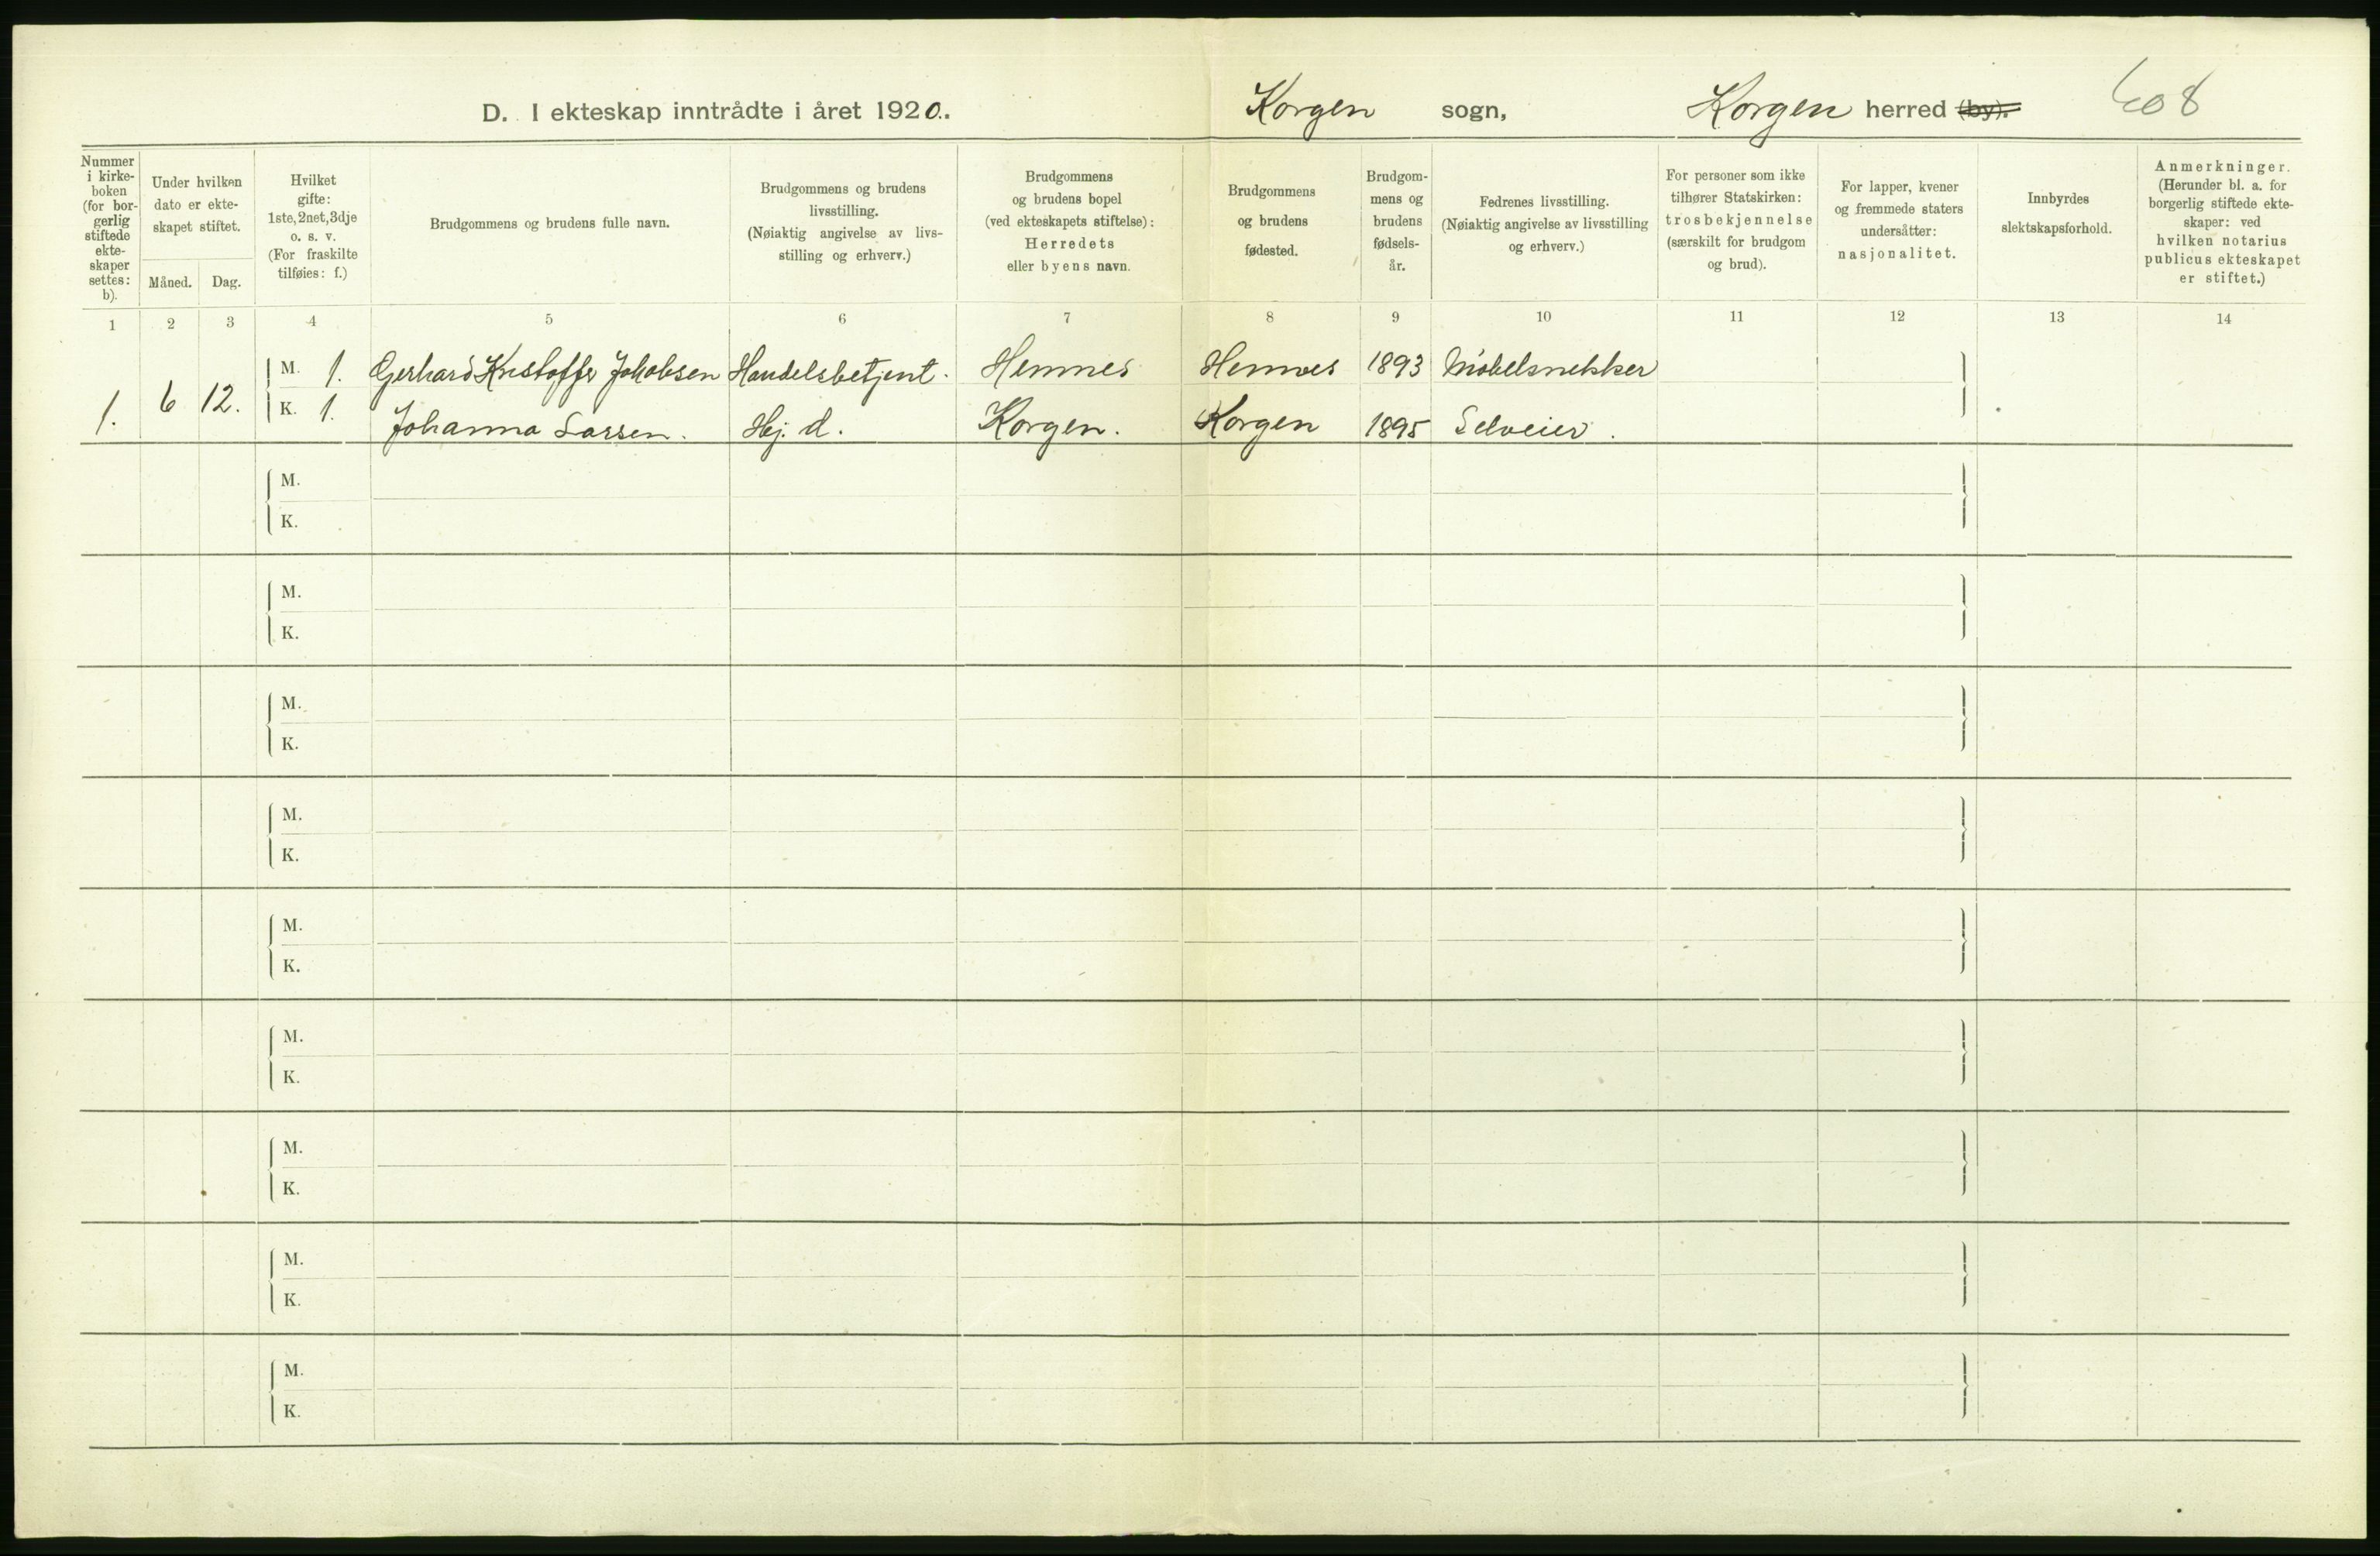 D. I ekteskap inntrådte i året 1920. Korgen sogn, Korgen herred (by). 608
Nummer i kirke-boken (for bor-gerlig stiftede ekte-skaper settes: b).
Under hvilken dato er ekte-skapet stiftet.
Måned. Dag.
Hvilket gifte: 1ste, 2net, 3dje o. s. v. (For fraskilte tilføies: f.)
Brudgommens og brudens fulle navn.
Brudgommens og brudens livsstilling. (Nøiaktig angivelse av livs-stilling og erhverv.)
Brudgommens og brudens bopel (ved ekteskapets stiftelse): Herredets eller byens navn.
Brudgommens og brudens fødested.
Brudgom-mens og brudens fødsels-år.
Fedrenes livsstilling. (Nøiaktig angivelse av livsstilling og erhverv.)
For personer som ikke tilhører Statskirken: trosbekjennelse (særskilt for brudgom og brud).
For lapper, kvener og fremmede staters undersåtter: nasjonalitet.
Innbyrdes slektskapsforhold.
Anmerkninger. (Herunder bl. a. for borgerlig stiftede ekte-skaper: ved hvilken notarius publicus ekteskapet er stiftet.)
1 2 3 4 5 6 7 8 9 10 11 12 13 14
M. 1. Gerhard Kristoffer Jakobsen Handelsbetjent. Hemnes Hemnes 1893 Møbelsnekker
1. 6 12. K. 1. Johanna Larsen. Hj. d. Korgen. Korgen 1895 Selveier.
M.
K.
M.
K.
M.
K.
M.
K.
M.
K.
M.
K.
M.
K.
M.
K.
M.
K.